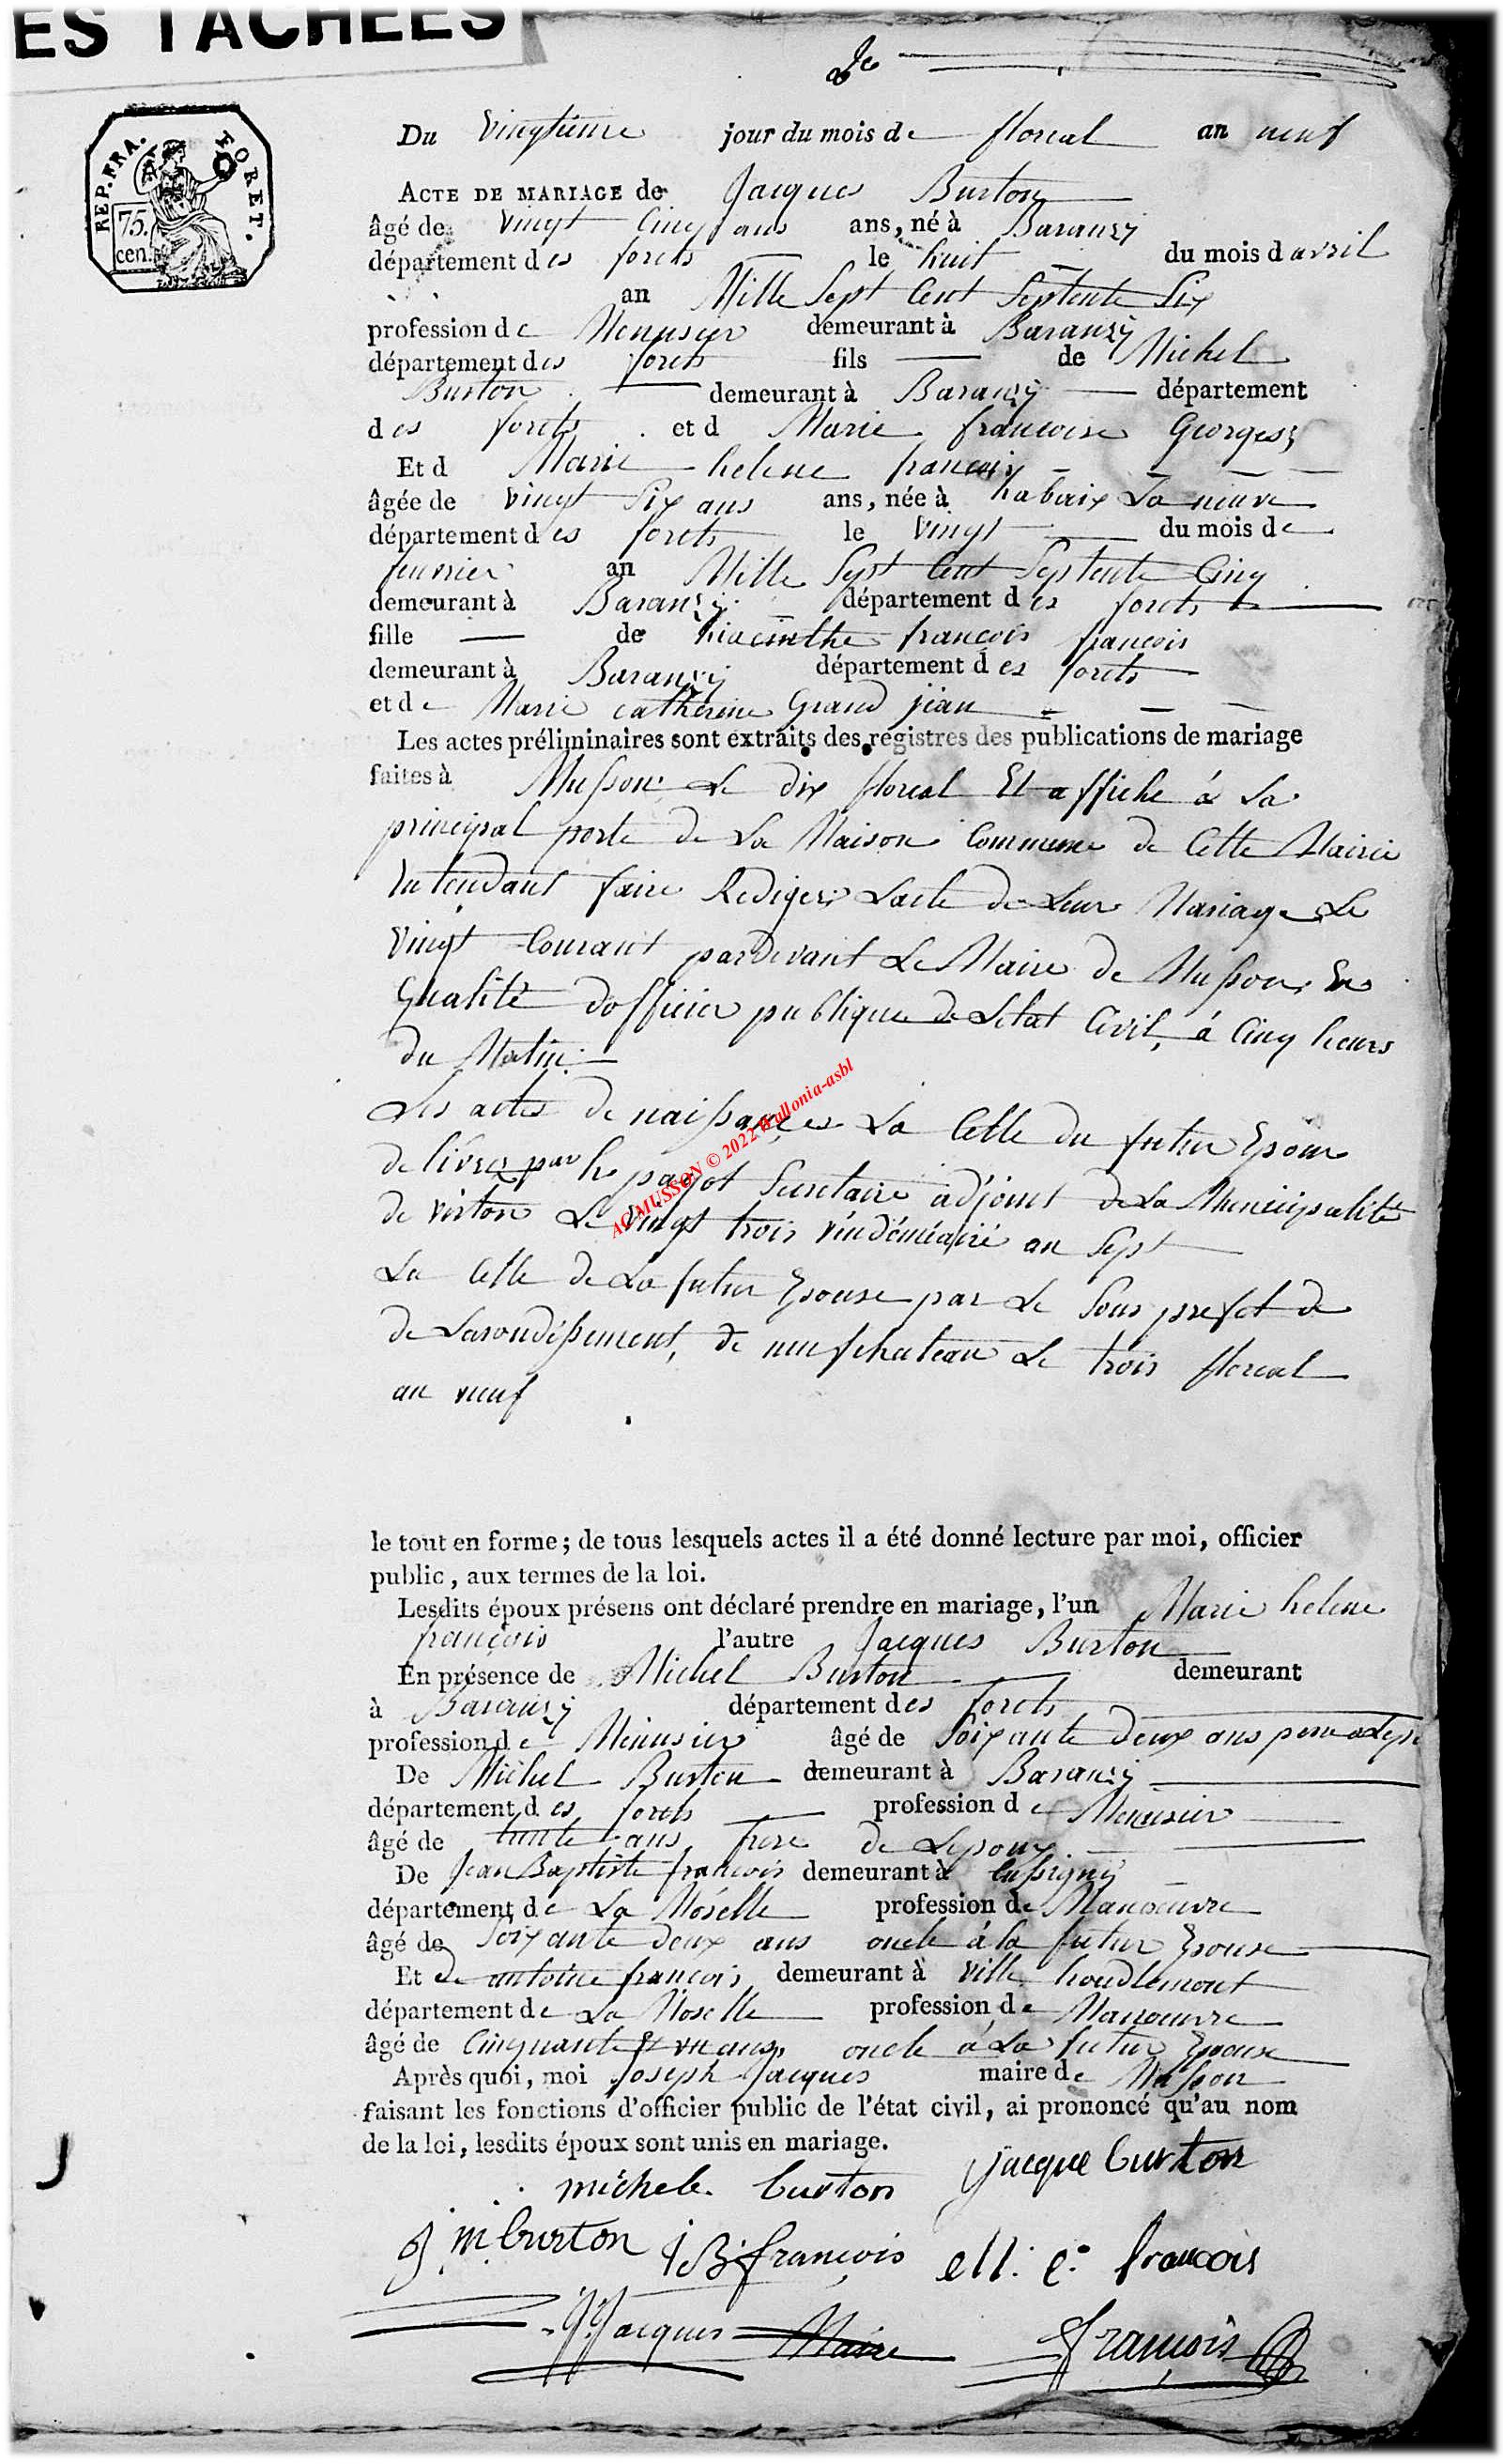 ES TACHÉES
2e
REP. FRA. FORET.
75.
cen.
Du Vingtieme jour du mois de floreal an neuf
ACTE DE MARIAGE de Jacques Burton
âgé de Vingt Cinq ans ans, né à Baranzÿ
département des forets le huit du mois d avril
an Mille Sept Cent Septente Six
profession de Menusier demeurant à Baranzÿ
département des forets fils de Michel
Burton demeurant à Baranzÿ département
des forets et d Marie francoise Georges
Et d Marie helene francois
âgée de Vingt Six ans ans, née à habaix La neuve
département des forets le Vingt du mois de
feuvrier an Mille Sept Cent Septente Cinq
demeurant à Baranzÿ département des forets
fille de hiacinthe françois françois
demeurant à Baranzÿ département des forets
et de Marie catherine Grand jean
Les actes préliminaires sont extraits des registres des publications de mariage
faites à Musson Le dix floreal Et affiche á La
principal porte de La Maison Commune de Cette Mairie
Intendant faire Rediger Lacte de Leur Mariage Le
Vingt Courant pardevant Le Maire de Musson En
Qualité dofficier publique de Letat Civil, á Cinq heurs
du Matin
Les actes de naissances La Celle du futur Epoux
delivrez par h pagot Secretaire adjoint de La Municipalité
de virton Le Vingt trois véndémiairé an Sept
AC MUSSON © 2022 Wallonia-asbl
La Celle de La futur Epouse par Le Sous prefet de
de Larondissement, de neufchateau Le trois floreal
an neuf
le tout en forme; de tous lesquels actes il a été donné lecture par moi, officier
public, aux termes de la loi.
Lesdits époux présens ont déclaré prendre en mariage, l'un Marie helene
françois l'autre Jacques Burton
En présence de Michel Burton demeurant
à Baranzÿ département des forets
profession de Menusier âgé de Soixante deux ans pere a Lepx
De Michel Burton demeurant à Baranzÿ
département des forets profession de Menusier
âgé de trente ans frere de Lepoux
De Jean Baptiste françois demeurant à Cussigny
département de La Móselle profession de Manoeuvre
âgé de Soixante deux ans oncle á la futur Epouse
Et de antoine françois demeurant à Ville houdlemont
département de La Moselle profession de Manoeuvre
âgé de Cinquante Et un ans, oncle á La futur Epouse
Après quoi, moi Joseph Jacques maire de Musson
faisant les fonctions d'officier public de l'état civil, ai prononcé qu'au nom
de la loi, lesdits époux sont unis en mariage.
jacque burton
michele burton
j. m burton JB françois françois
J. Jacques Maire françois